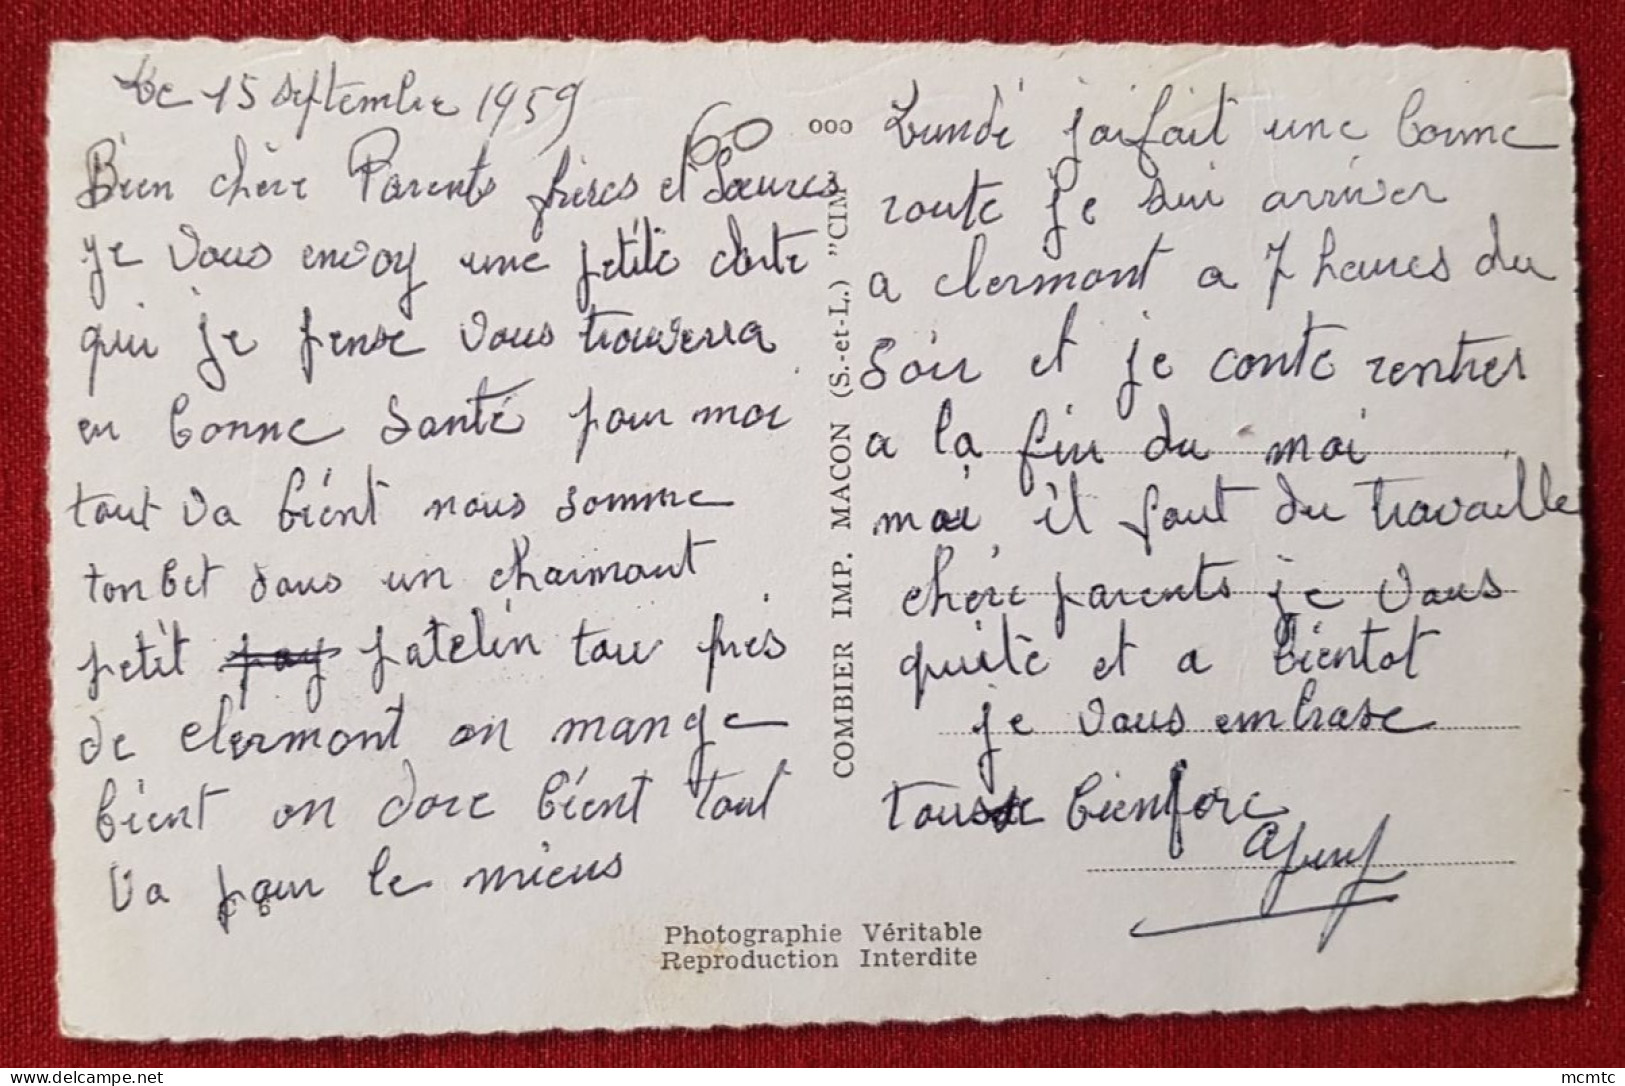 Le 15 septembre 1959
60
Bien chère Parents frères et Soeures
je vous envoy une petite carte
qui je pense vous trouverra
en bonne Santé pour moi
tout va bient nous somme
tonbet dans un charmant
petit pay patelin tou près
de clermont on mange
bient on dore bient tout
va pour le mieus
ooo
COMBIER IMP. MACON (S.-et-L.) "CIM"
Lundi jai fait une bonne
route je sui arriver
a clermont a 7 heures du
Soir et je conte rentrer
a la fin du moi
moi il faut du travaille
chère parents je vous
quite et a bientot
je vous embrase
tous bien fore
Photographie Véritable
Reproduction Interdite
mcmtc